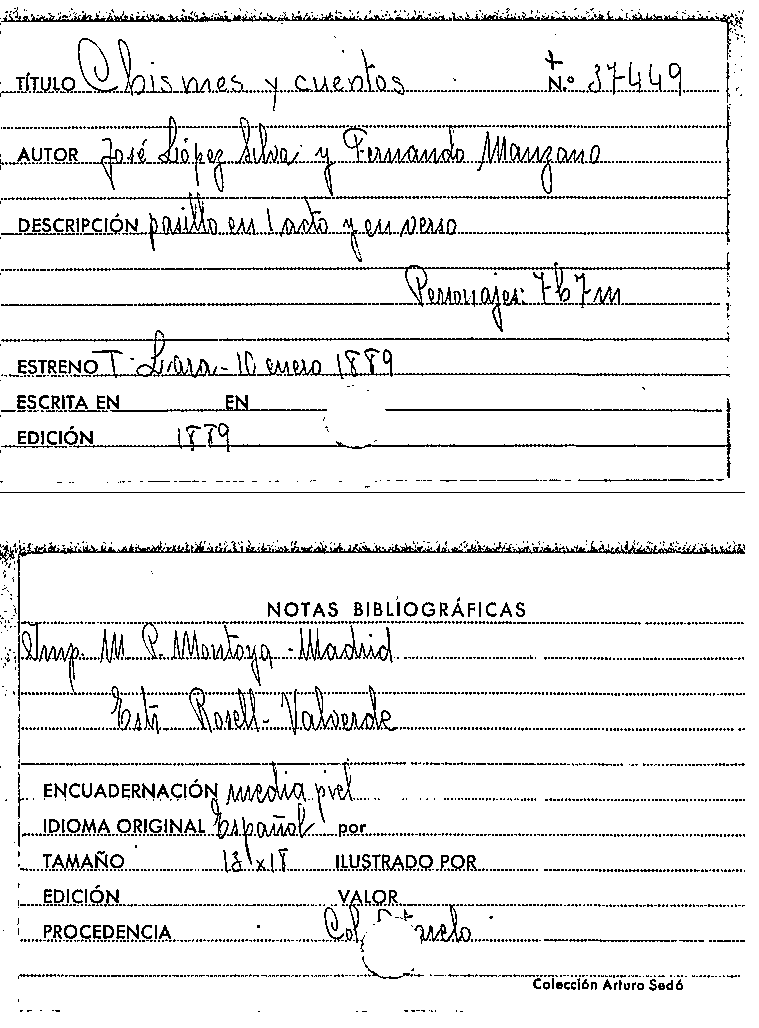 TÍTULO Chismes y cuentos N.º 37449
AUTOR José López Silva y Fernando Manzano
DESCRIPCIÓN pasillo en 1 acto y en verso
Personajes: 7h 7m
ESTRENO T. Lara - 10 enero 1889
ESCRITA EN EN
EDICIÓN 1889
NOTAS BIBLIOGRÁFICAS
Imp. M. P. Montoya - Madrid
Estr. Rosell - Valverde
ENCUADERNACIÓN media piel
IDIOMA ORIGINAL Español por
TAMAÑO 13 x 18 ILUSTRADO POR
EDICIÓN VALOR
PROCEDENCIA Col.
Colección Arturo Sedó